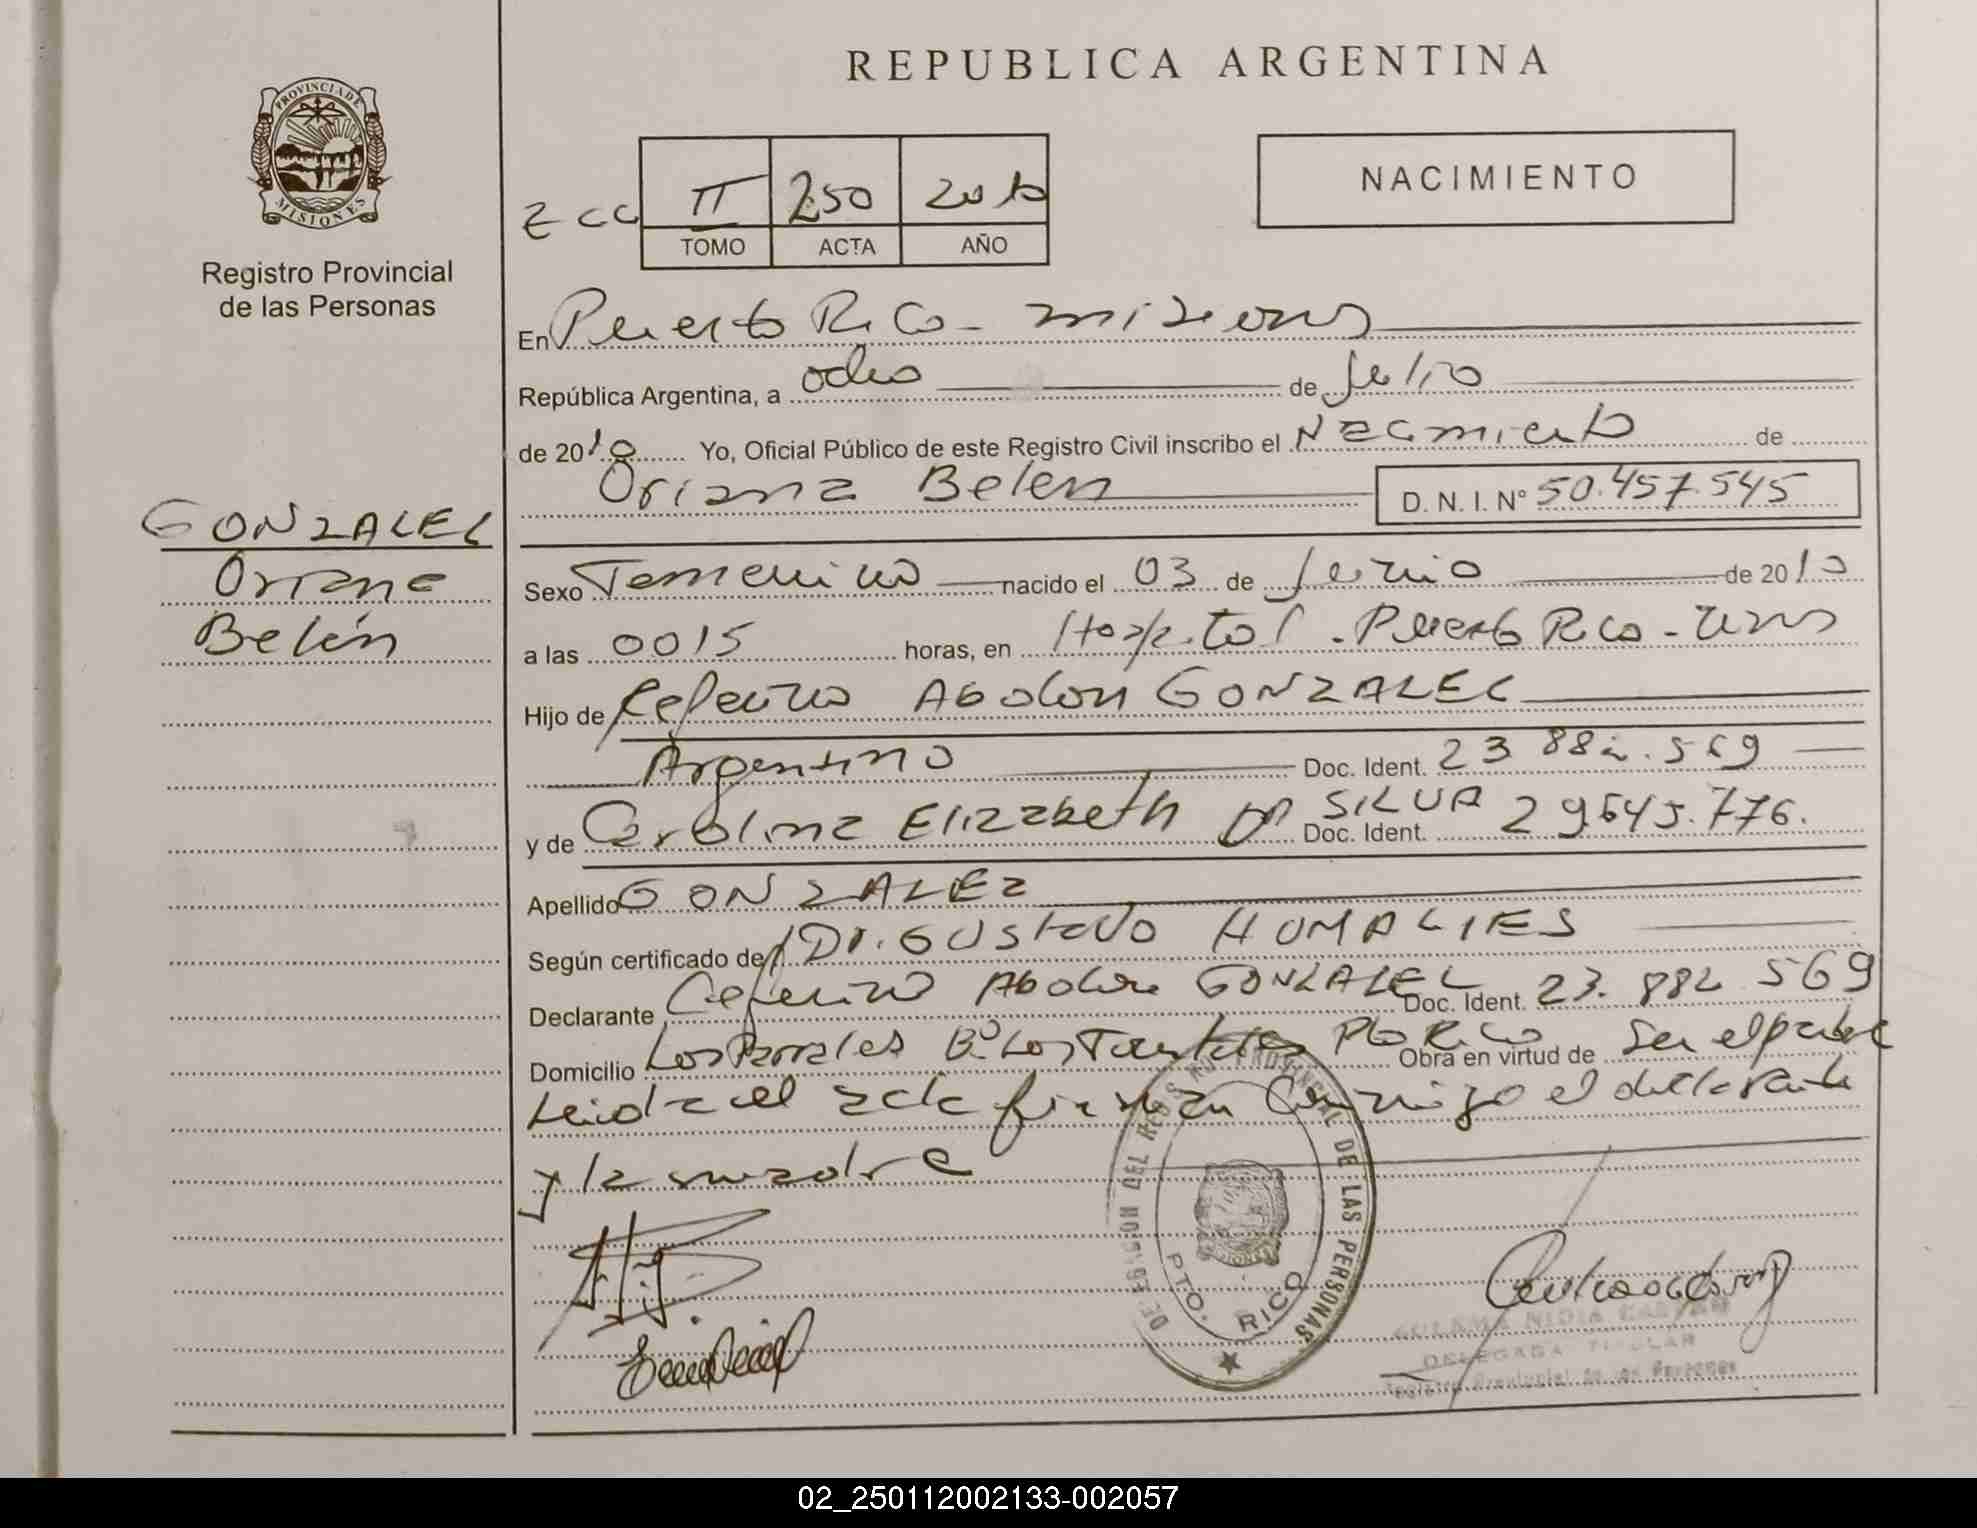 REPUBLICA ARGENTINA
PROVINCIA DE
MISIONES
Registro Provincial
de las Personas
II 250 2010
TOMO ACTA AÑO
NACIMIENTO
En Puerto Rico - misiones
República Argentina, a ocho de Julio
de 2010 Yo, Oficial Público de este Registro Civil inscribo el Nacimiento de
Oriana Belen D. N. I. Nº 50.457.545
GONZALEZ
Oriana
Belén
Sexo Femenino nacido el 03 de Junio de 2010
a las 0015 horas, en Hospital - Puerto Rico - mnes
Hijo de Ceferino Abdon GONZALEZ
y Argentino Doc. Ident. 23 882.569
y de Carolina Elizabeth Da SILVA Doc. Ident. 29645.776.
Apellido GONZALEZ
Según certificado de Dr. GUSTAVO HUMALIES
Declarante Ceferino Abdon GONZALEZ Doc. Ident. 23. 882 569
Domicilio Los Parrales Bº Los Pto Rico Obra en virtud de Ser el padre
Leida el acta firman Conmigo el declarante
y la madre
PROVINCIAL DE LAS PERSONAS
PTO. RICO
DELEGADA TITULAR
Registro Provincial de las Personas
02_250112002133-002057